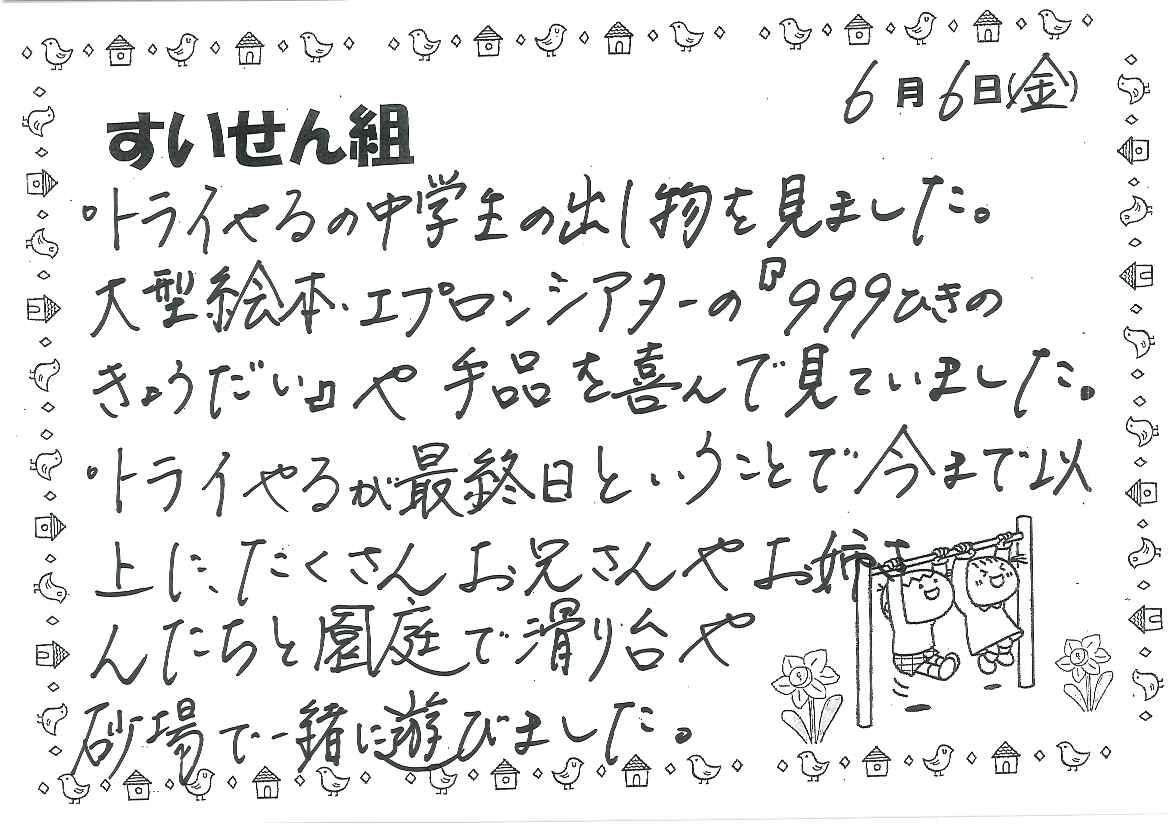 6月6日(金)
すいせん組
°トライやるの中学生の出し物を見ました。
大型絵本・エプロンシアターの『999ひきの
きょうだい』や手品を喜んで見ていました。
°トライやるが最終日ということで今まで以
上に、たくさんお兄さんやお姉さ
んたちと園庭で滑り台や
砂場で一緒に遊びました。